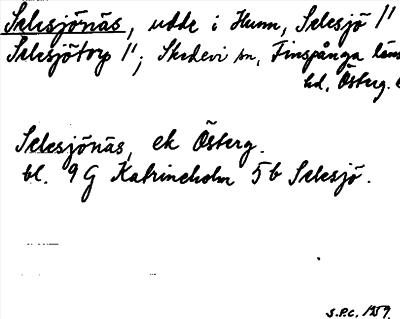 Selesjönäs, udde i Hunn, Selesjö 1/1
Selesjötorp 1/1; Skedevi sn, Finspånga läns
hd, Österg.
Selesjönäs, ek Österg.
bl. 9 G Katrineholm 5b Selesjö.
S.P.C. 1959.